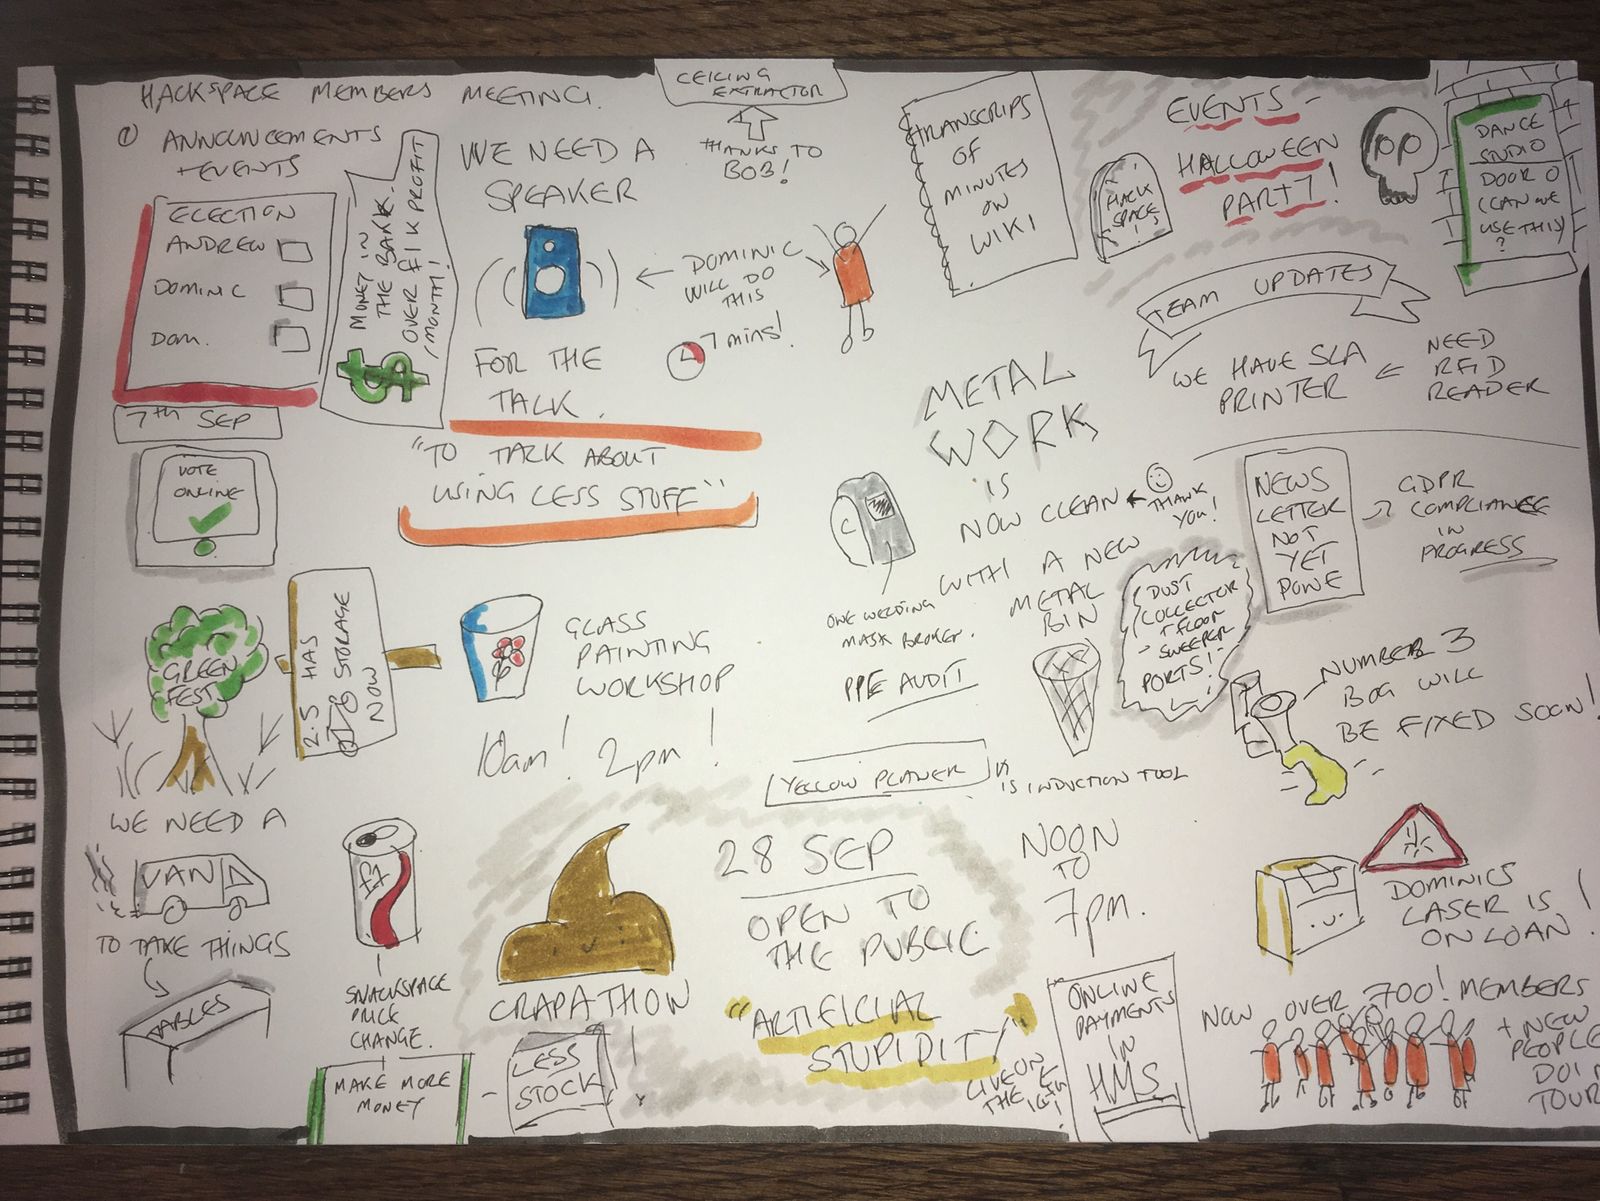 HACKSPACE MEMBERS MEETING.
① ANNOUNCEMENTS
+ EVENTS
ELECTION
ANDREW
DOMINIC
DOM.
7th SEP
VOTE
ONLINE
MONEY IN
THE BANK.
OVER £1K PROFIT
/MONTH!
$
WE NEED A
SPEAKER
FOR THE
TALK.
"TO TALK ABOUT
USING LESS STUFF"
CEILING
EXTRACTOR
THANKS TO
BOB!
DOMINIC
WILL DO
THIS
7 mins!
TRANSCRIPS
OF
MINUTES
ON
WIKI
EVENTS -
HALLOWEEN
PARTY!
HACK
SPACE
!
DANCE
STUDIO
DOOR
(CAN WE
USE THIS)
?
TEAM UPDATES
WE HAVE SLA
PRINTER
NEED
RFID
READER
METAL
WORK
IS
NOW CLEAN
THANK
YOU!
WITH A NEW
METAL
BIN
ONE WELDING
MASK BROKEN.
PPE AUDIT
DUST
COLLECTOR
+ FLOOR
SWEEPER
PORTS!
NEWS
LETTER
NOT
YET
DONE
GDPR
COMPLIANCE
IN
PROGRESS
GREEN
FEST
2.5 HAS
STORAGE
NOW
GLASS
PAINTING
WORKSHOP
10am! 2pm!
NUMBER 3
BOG WILL
BE FIXED SOON!
YELLOW PLANER
IS INDUCTION TOOL
WE NEED A
VAN
TO TAKE THINGS
TABLES
£1
SNACKSPACE
PRICE
CHANGE.
MAKE MORE
MONEY
- LESS
STOCK
CRAPATHON
!
28 SEP
OPEN TO
THE PUBLIC
NOON
TO
7pm.
"ARTIFICIAL
STUPIDITY"
LIVE ON
THE
ONLINE
PAYMENTS
IN
HMS
DOMINICS
LASER IS
ON LOAN!
NOW OVER 700! MEMBERS
+ NEW
PEOPLE
TOUR